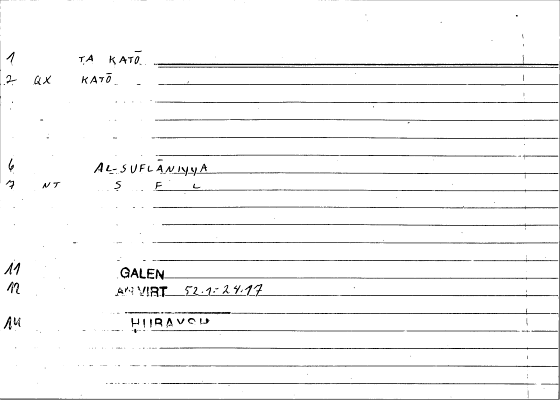 1 TA KATŌ
2 QX KATŌ
6 AL-SUFLĀNIYYA
7 NT S F L
11 GALEN
12 AN VIRT 52.1-24.17
14 ḤUBAYŠ